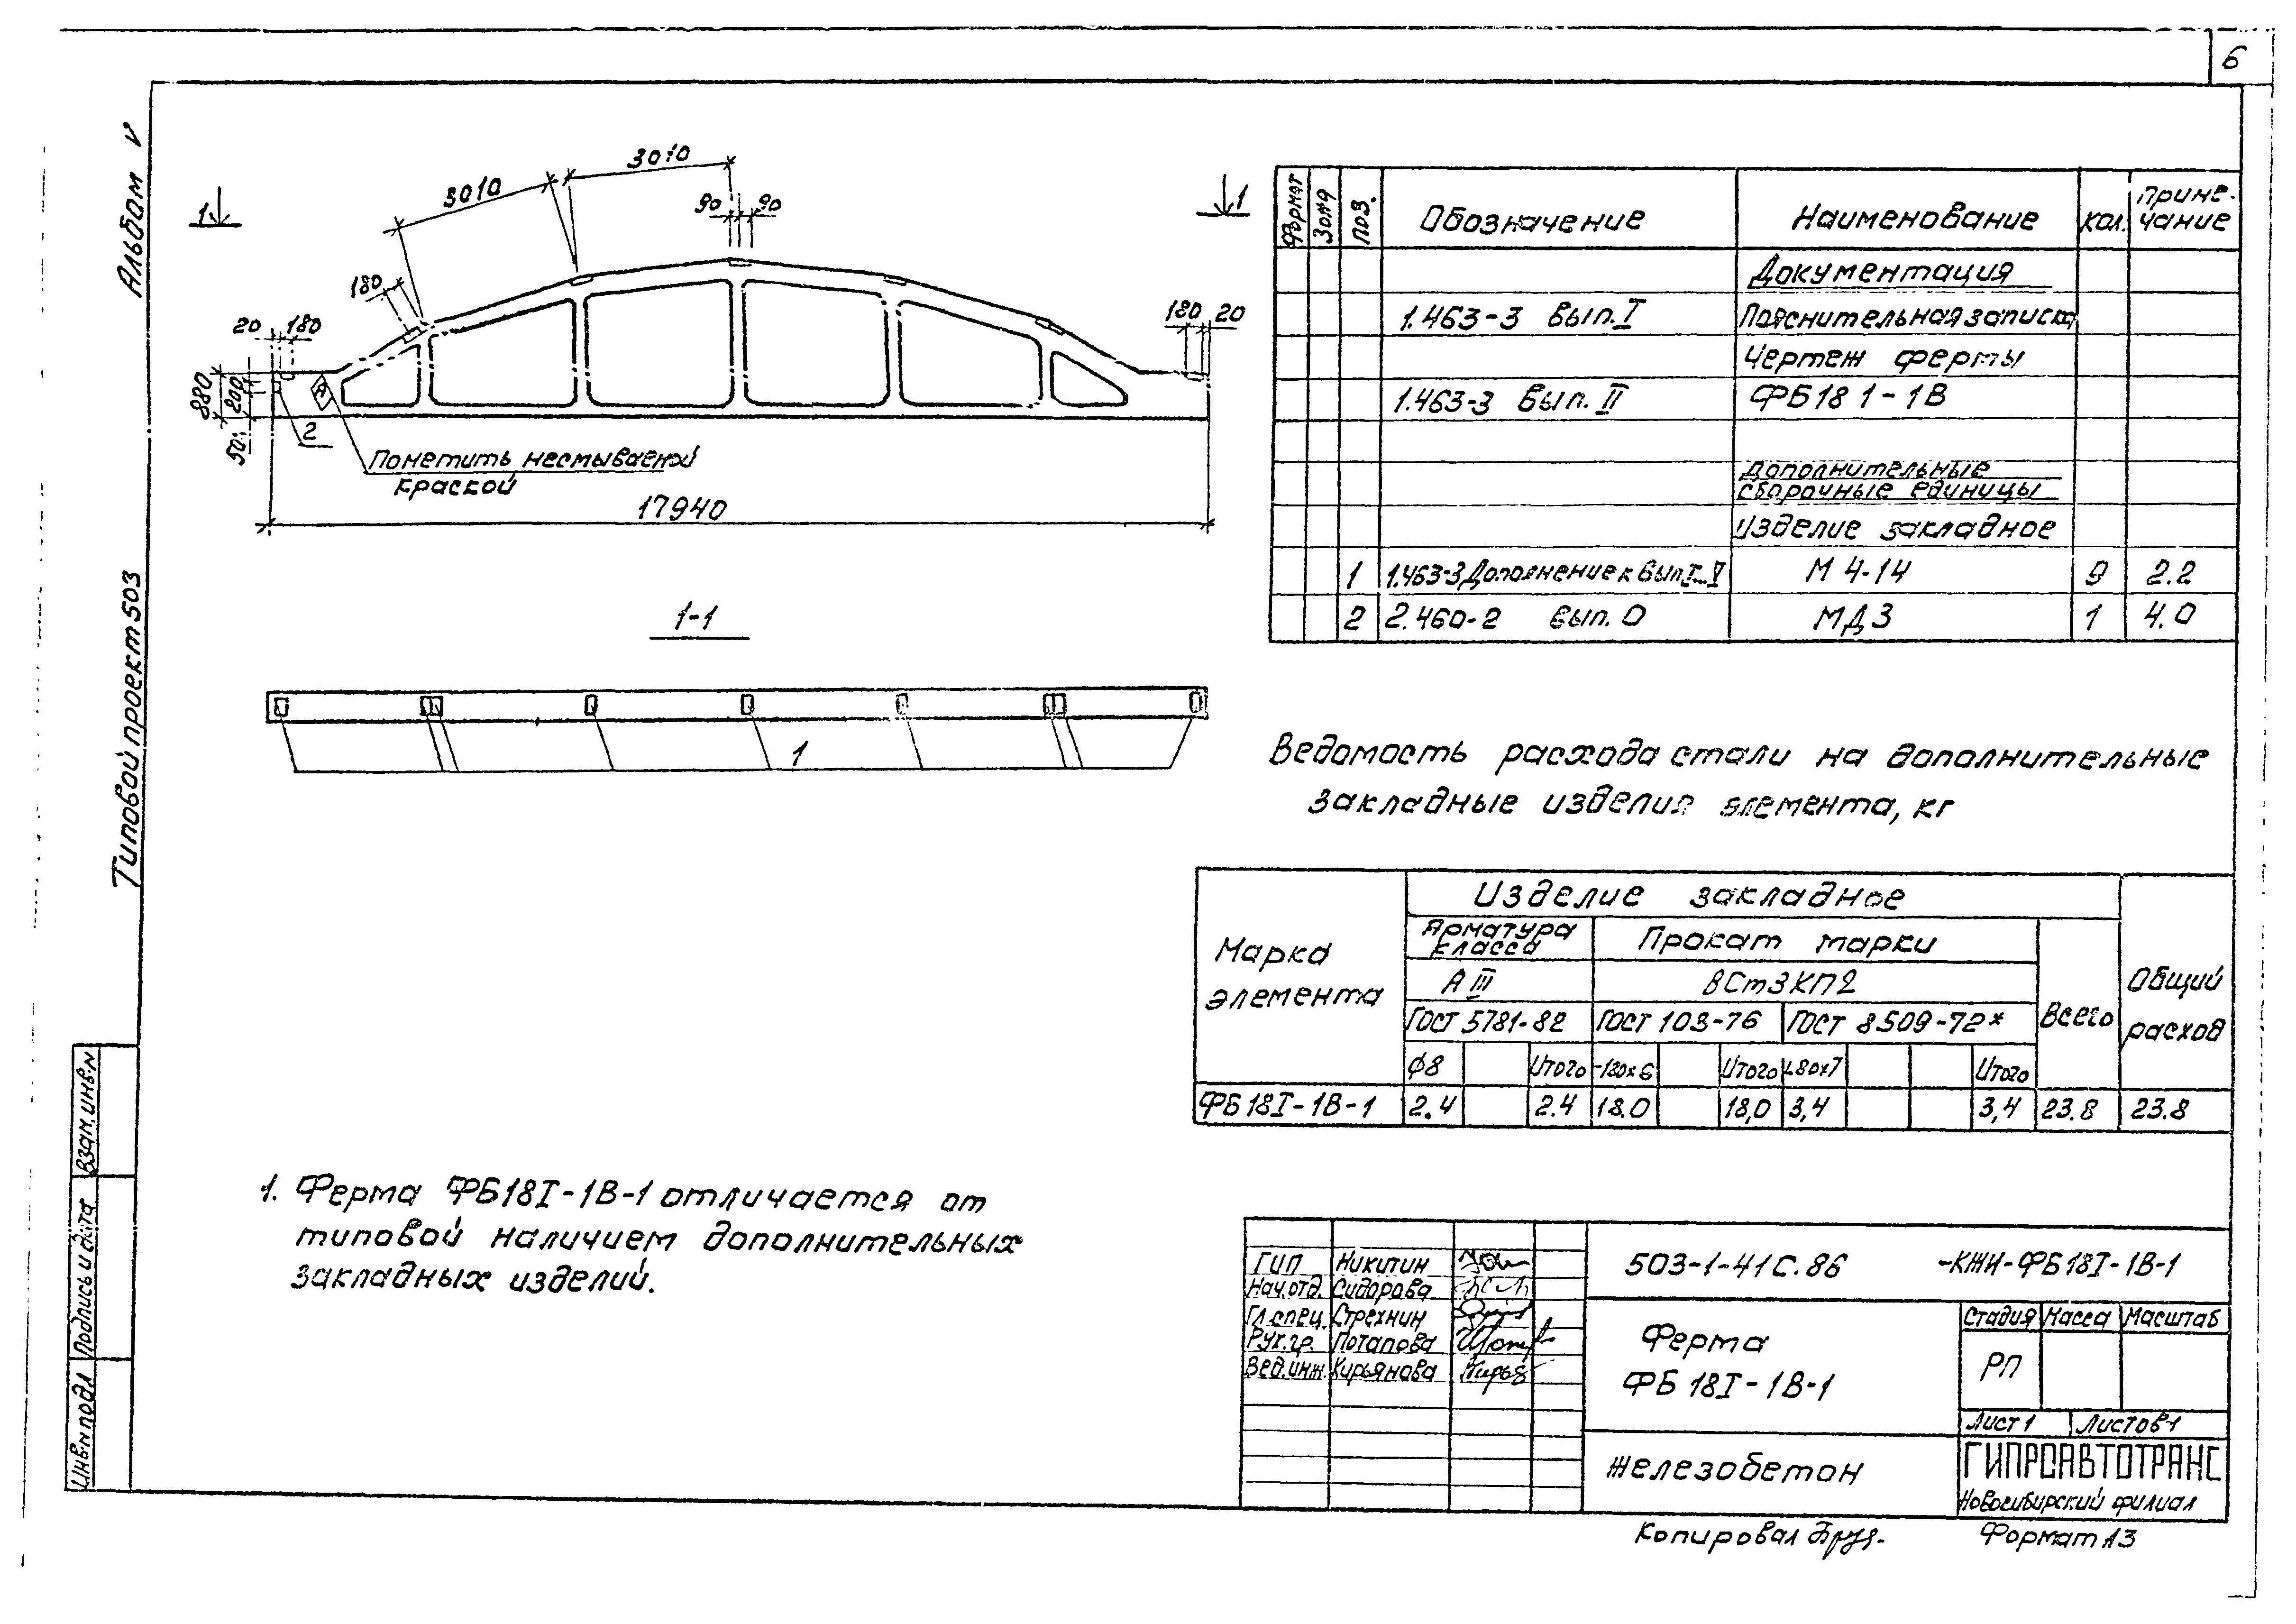 6
Альбом V
Типовой проект 503
3010
3010
90
90
1
1
180
20
180
180
20
880
200
50
2
Пометить несмываемой
краской
17940
1-1
1
Формат
Зона
Поз.
Обозначение
Наименование
Кол.
Приме-
чание
Документация
1.463-3 Вып. I
Пояснительная записка
Чертеж фермы
1.463-3 Вып. II
ФБ18 1-1В
Дополнительные
сборочные единицы
Изделие закладное
1
1.463-3 Дополнение к вып. I...V
М 4-14
9
2.2
2
2.460-2 вып. 0
МД 3
1
4.0
Ведомость расхода стали на дополнительные
закладные изделия элемента, кг
Марка
элемента
Изделие закладное
Арматура
класса
Прокат марки
А III
ВСт3КП2
ГОСТ 5781-82
ГОСТ 103-76
ГОСТ 8509-72*
Всего
Общий
расход
ф8
Итого
-180х6
Итого
L80х7
Итого
ФБ18I-1В-1
2.4
2.4
18.0
18,0
3,4
3,4
23.8
23.8
1. Ферма ФБ18I-1В-1 отличается от
типовой наличием дополнительных
закладных изделий.
Взам. инв. N
Подпись и дата
Инв. N подл
ГИП Никитин
Нач. отд. Сидорова
Гл. спец. Стрехнин
Рук. гр. Потапова
Вед. инж. Кирьянова
503-1-41с.86 -КЖИ-ФБ18I-1В-1
Ферма
ФБ 18I-1В-1
Стадия
Масса
Масштаб
РП
Лист 1
Листов 1
Железобетон
ГИПРОАВТОТРАНС
Новосибирский филиал
Копировал
Формат А3